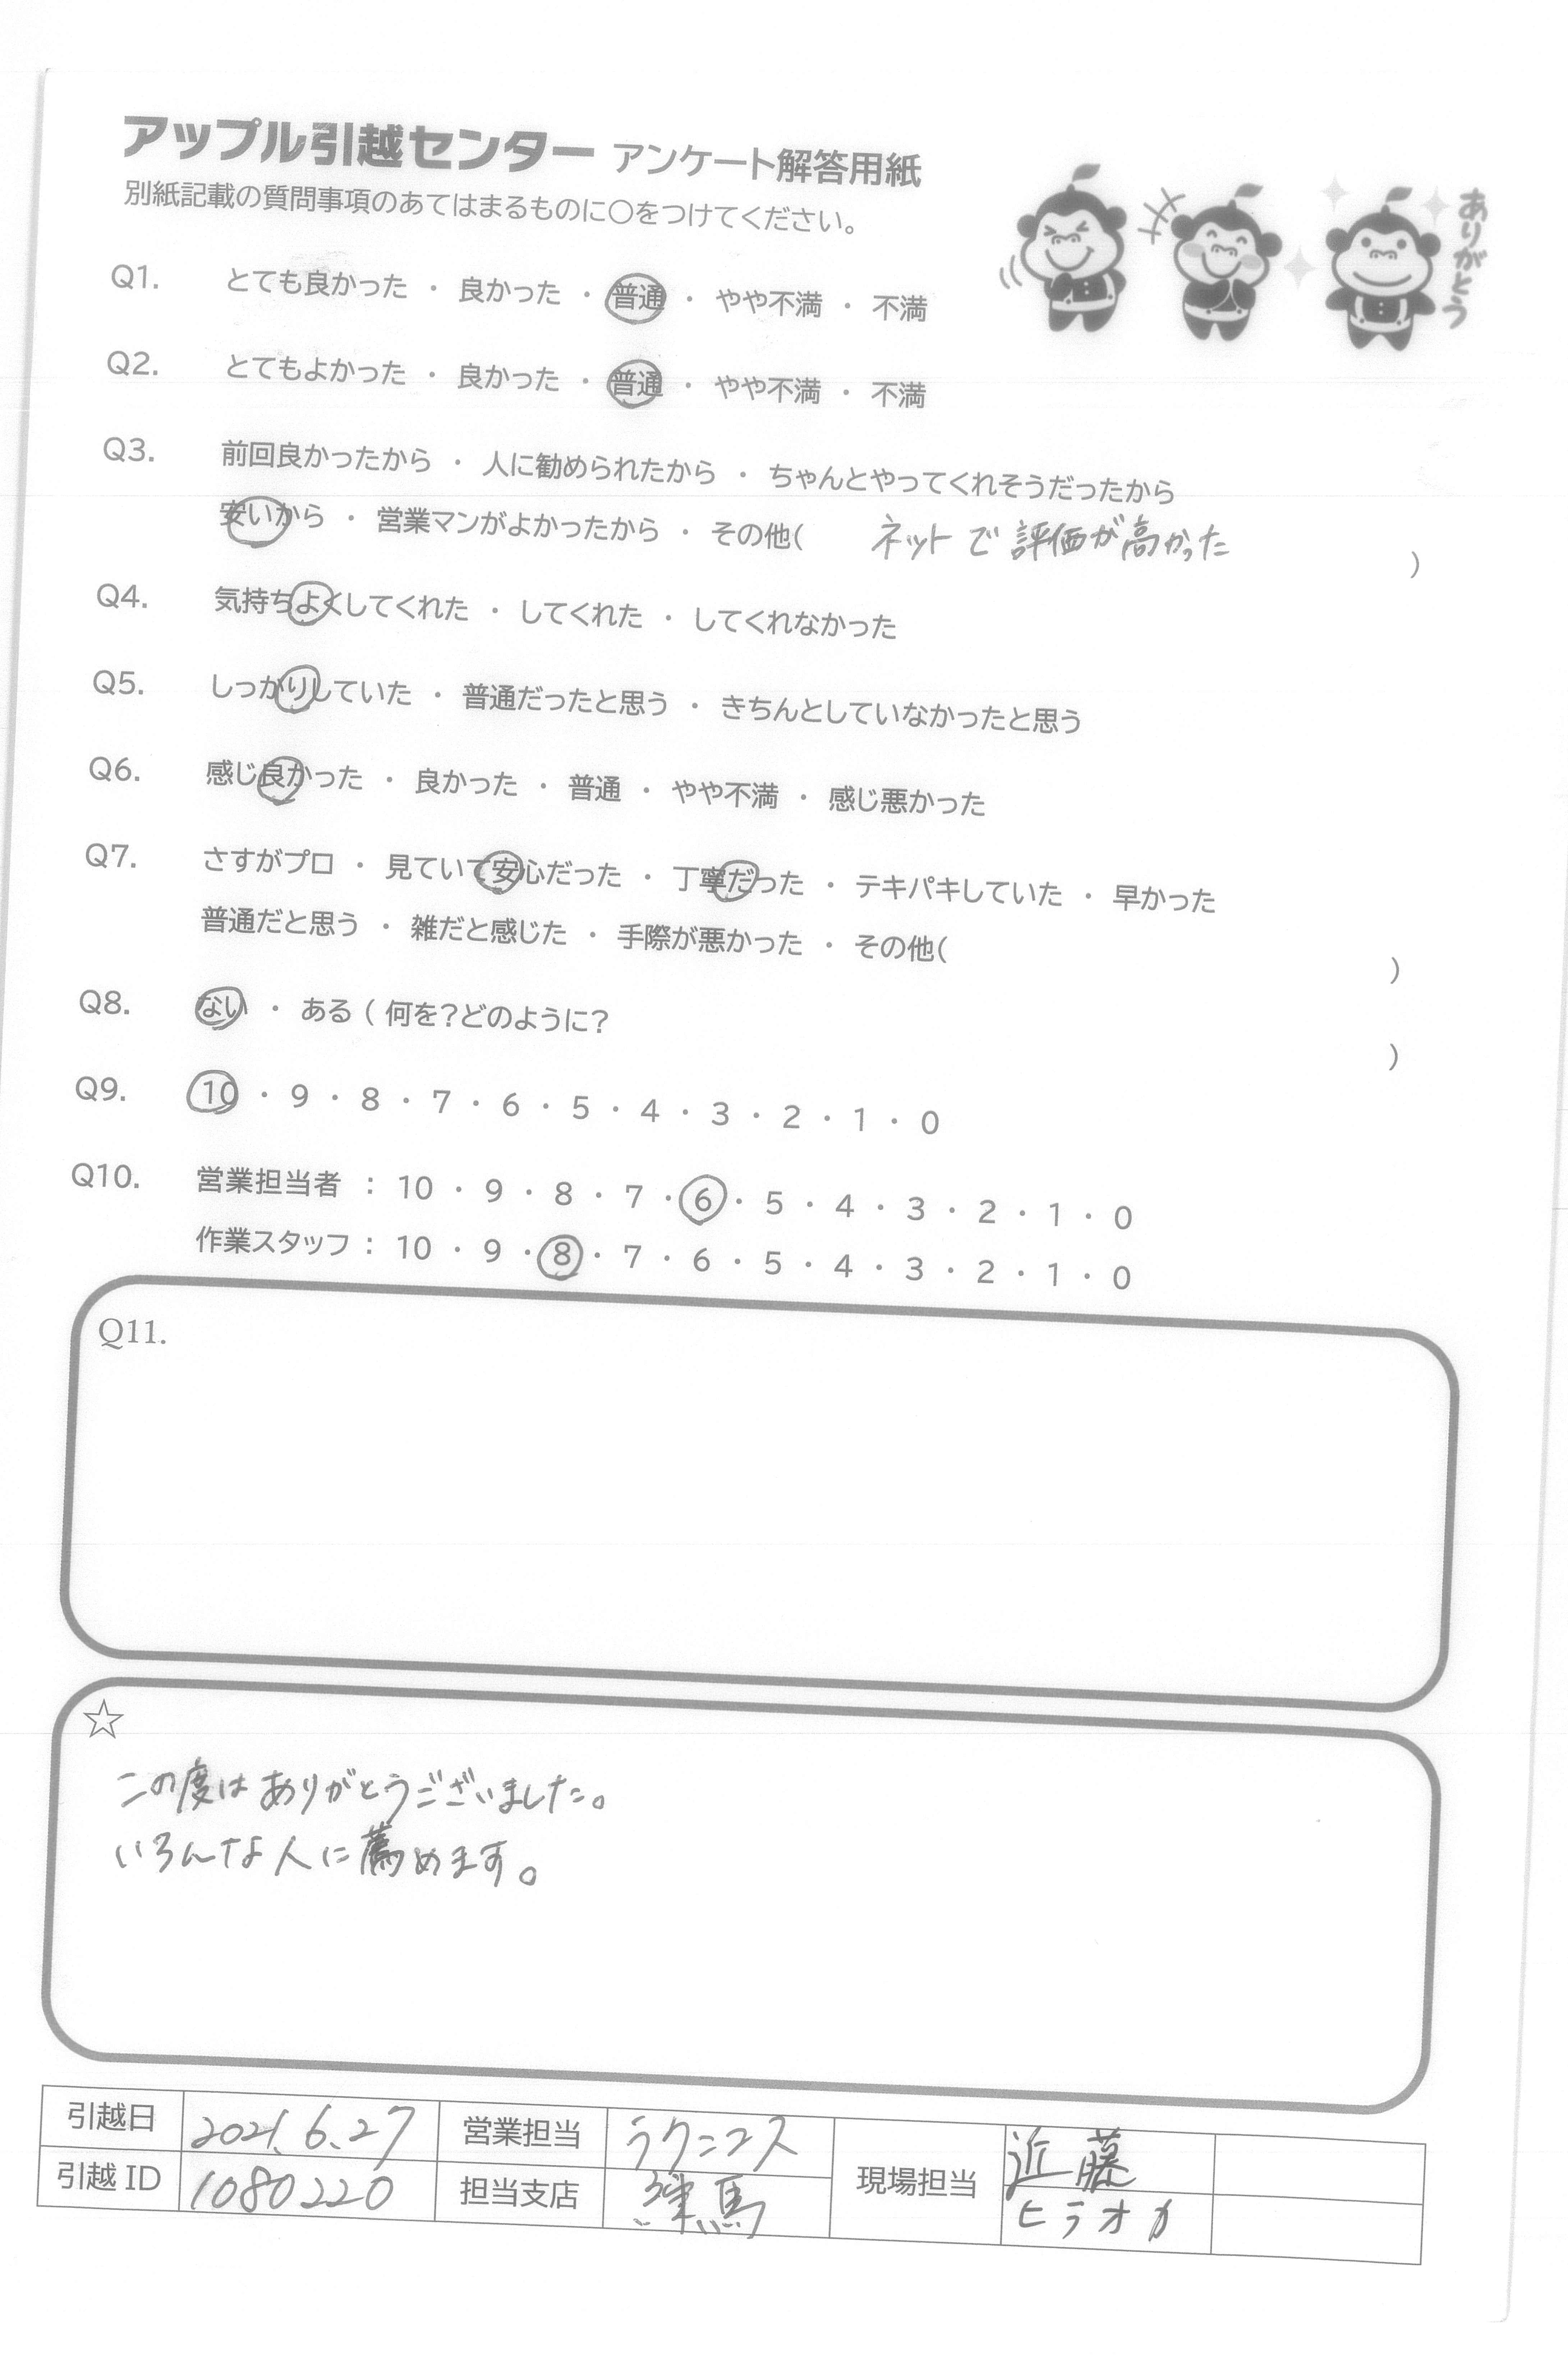 アップル引越センター アンケート解答用紙
別紙記載の質問事項のあてはまるものに○をつけてください。
ありがとう
Q1. とても良かった ・ 良かった ・ 普通 ・ やや不満 ・ 不満
Q2. とてもよかった ・ 良かった ・ 普通 ・ やや不満 ・ 不満
Q3. 前回良かったから ・ 人に勧められたから ・ ちゃんとやってくれそうだったから
安いから ・ 営業マンがよかったから ・ その他( ネットで評価が高かった )
Q4. 気持ちよくしてくれた ・ してくれた ・ してくれなかった
Q5. しっかりしていた ・ 普通だったと思う ・ きちんとしていなかったと思う
Q6. 感じ良かった ・ 良かった ・ 普通 ・ やや不満 ・ 感じ悪かった
Q7. さすがプロ ・ 見ていて安心だった ・ 丁寧だった ・ テキパキしていた ・ 早かった
普通だと思う ・ 雑だと感じた ・ 手際が悪かった ・ その他( )
Q8. ない ・ ある ( 何を?どのように? )
Q9. 10 ・ 9 ・ 8 ・ 7 ・ 6 ・ 5 ・ 4 ・ 3 ・ 2 ・ 1 ・ 0
Q10. 営業担当者 : 10 ・ 9 ・ 8 ・ 7 ・ 6 ・ 5 ・ 4 ・ 3 ・ 2 ・ 1 ・ 0
作業スタッフ : 10 ・ 9 ・ 8 ・ 7 ・ 6 ・ 5 ・ 4 ・ 3 ・ 2 ・ 1 ・ 0
Q11.
☆
この度はありがとうございました。
いろんな人に薦めます。
引越日 2021.6.27 営業担当 ラクニコス 現場担当 近藤
引越ID 1080220 担当支店 練馬 ヒラオカ